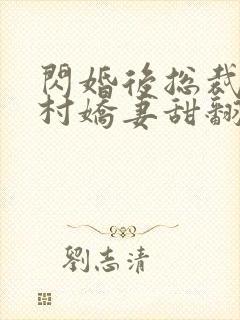 閃婚後總裁
村嬌妻甜翻
劉志清